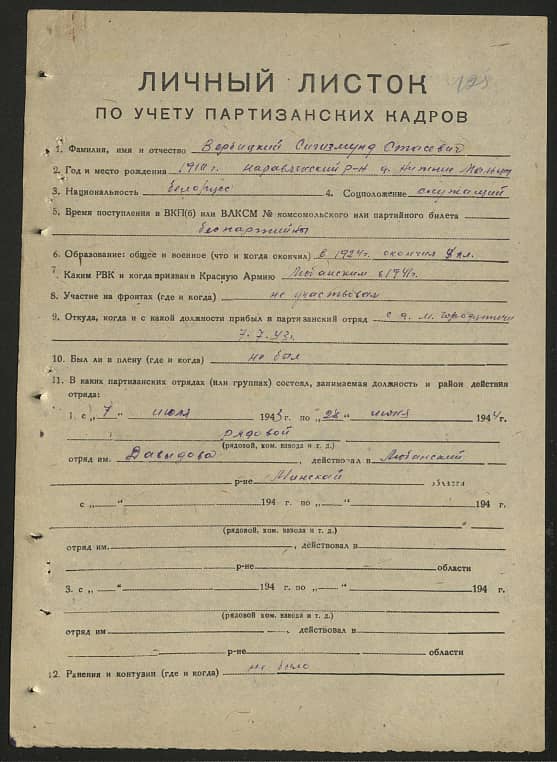 ЛИЧНЫЙ ЛИСТОК
ПО УЧЕТУ ПАРТИЗАНСКИХ КАДРОВ
1. Фамилия, имя и отчество Вербицкий Сигизмунд Стасевич
2. Год и место рождения р-н д.
3. Национальность белорусс 4. Соцположение служащий
5. Время поступления в ВКП(б) или ВЛКСМ № комсомольского или партийного билета
беспартийны
6. Образование: общее и военное (что и когда окончил) в 1924г. окончил
7. Каким РВК и когда призван в Красную Армию Любанским в 1941г.
8. Участие на фронтах (где и когда) не участвовал
9. Откуда, когда и с какой должности прибыл в партизанский отряд с д. М. Городятичи
7.7.43г.
10. Был ли в плену (где и когда) не был
11. В каких партизанских отрядах (или группах) состоял, занимаемая должность и район действия
отряда:
1. с „7“ июля 1943 г. по „28“ июня 1944 г.
рядовой
(рядовой, ком. взвода и т. д.)
отряд им. Давыдова, действовал в Любанский
р-не Минской области
с „—“ 194 г. по „—“ 194 г.
(рядовой, ком. взвода и т. д.)
отряд им. , действовал в
р-не области
3. с „—“ 194 г. по „—“ 194 г.
(рядовой ком. взвода и т. д.)
отряд им , действовал в
р-не области
12. Ранения и контузии (где и когда) не было